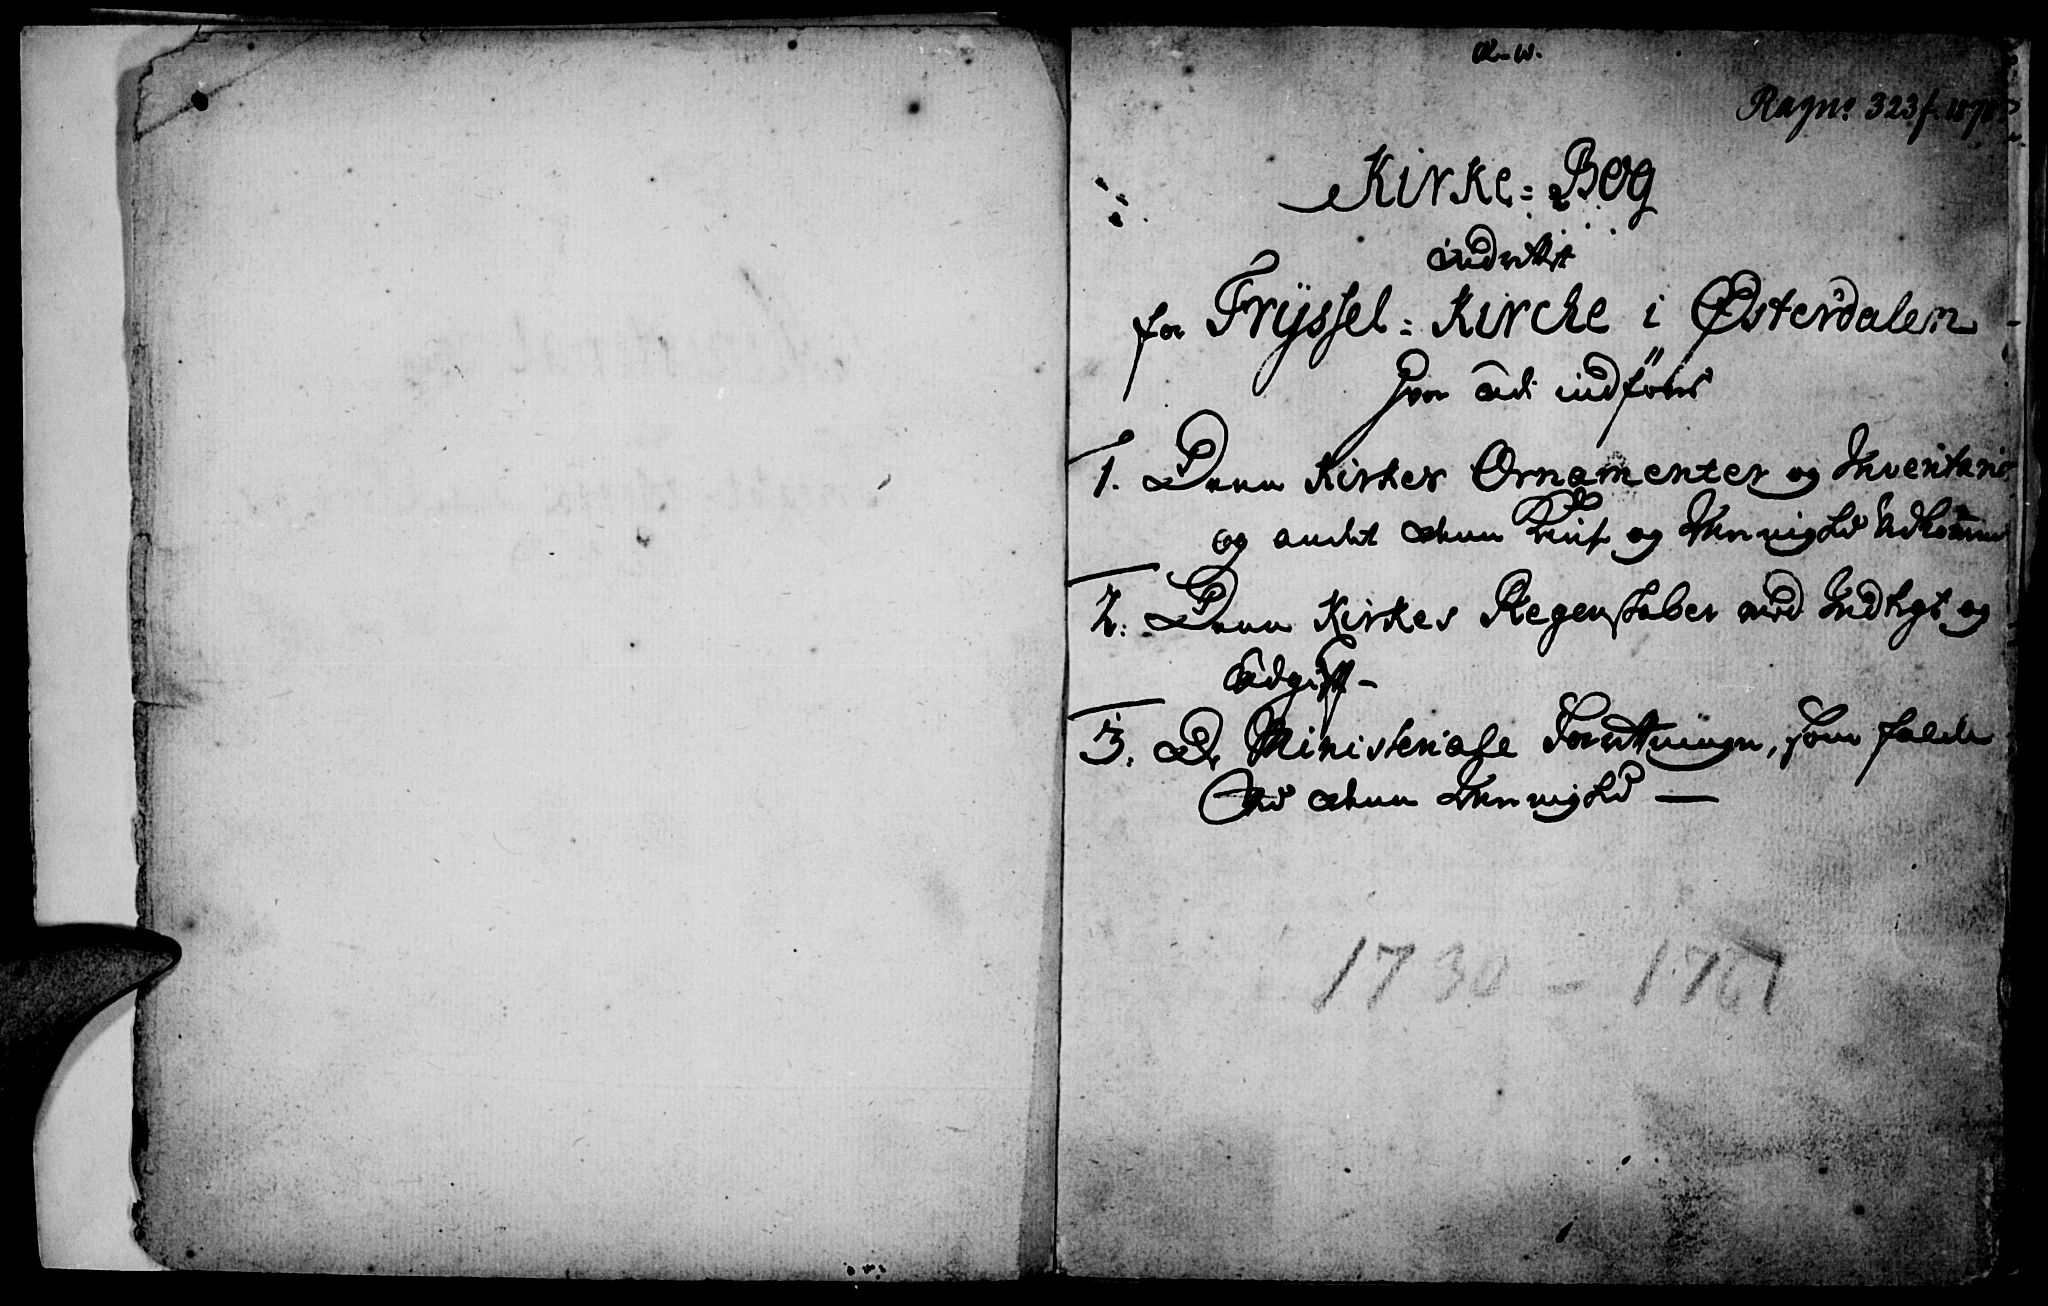 Ragn: 323 f. 187
Kirke=Bog
indrettet
for Tryssel=Kirche i Østerdalen
Hvor udi indføres
1. Denne Kirkes Ornamenter og Inventario
og andet denne Kirke og Menighed
2. Denne Kirkes Regenskaber med Indtægt og
Udgift -
3. De Ministeriale Forretninger, som falde
ved denne Menighed —
1730 - 1767